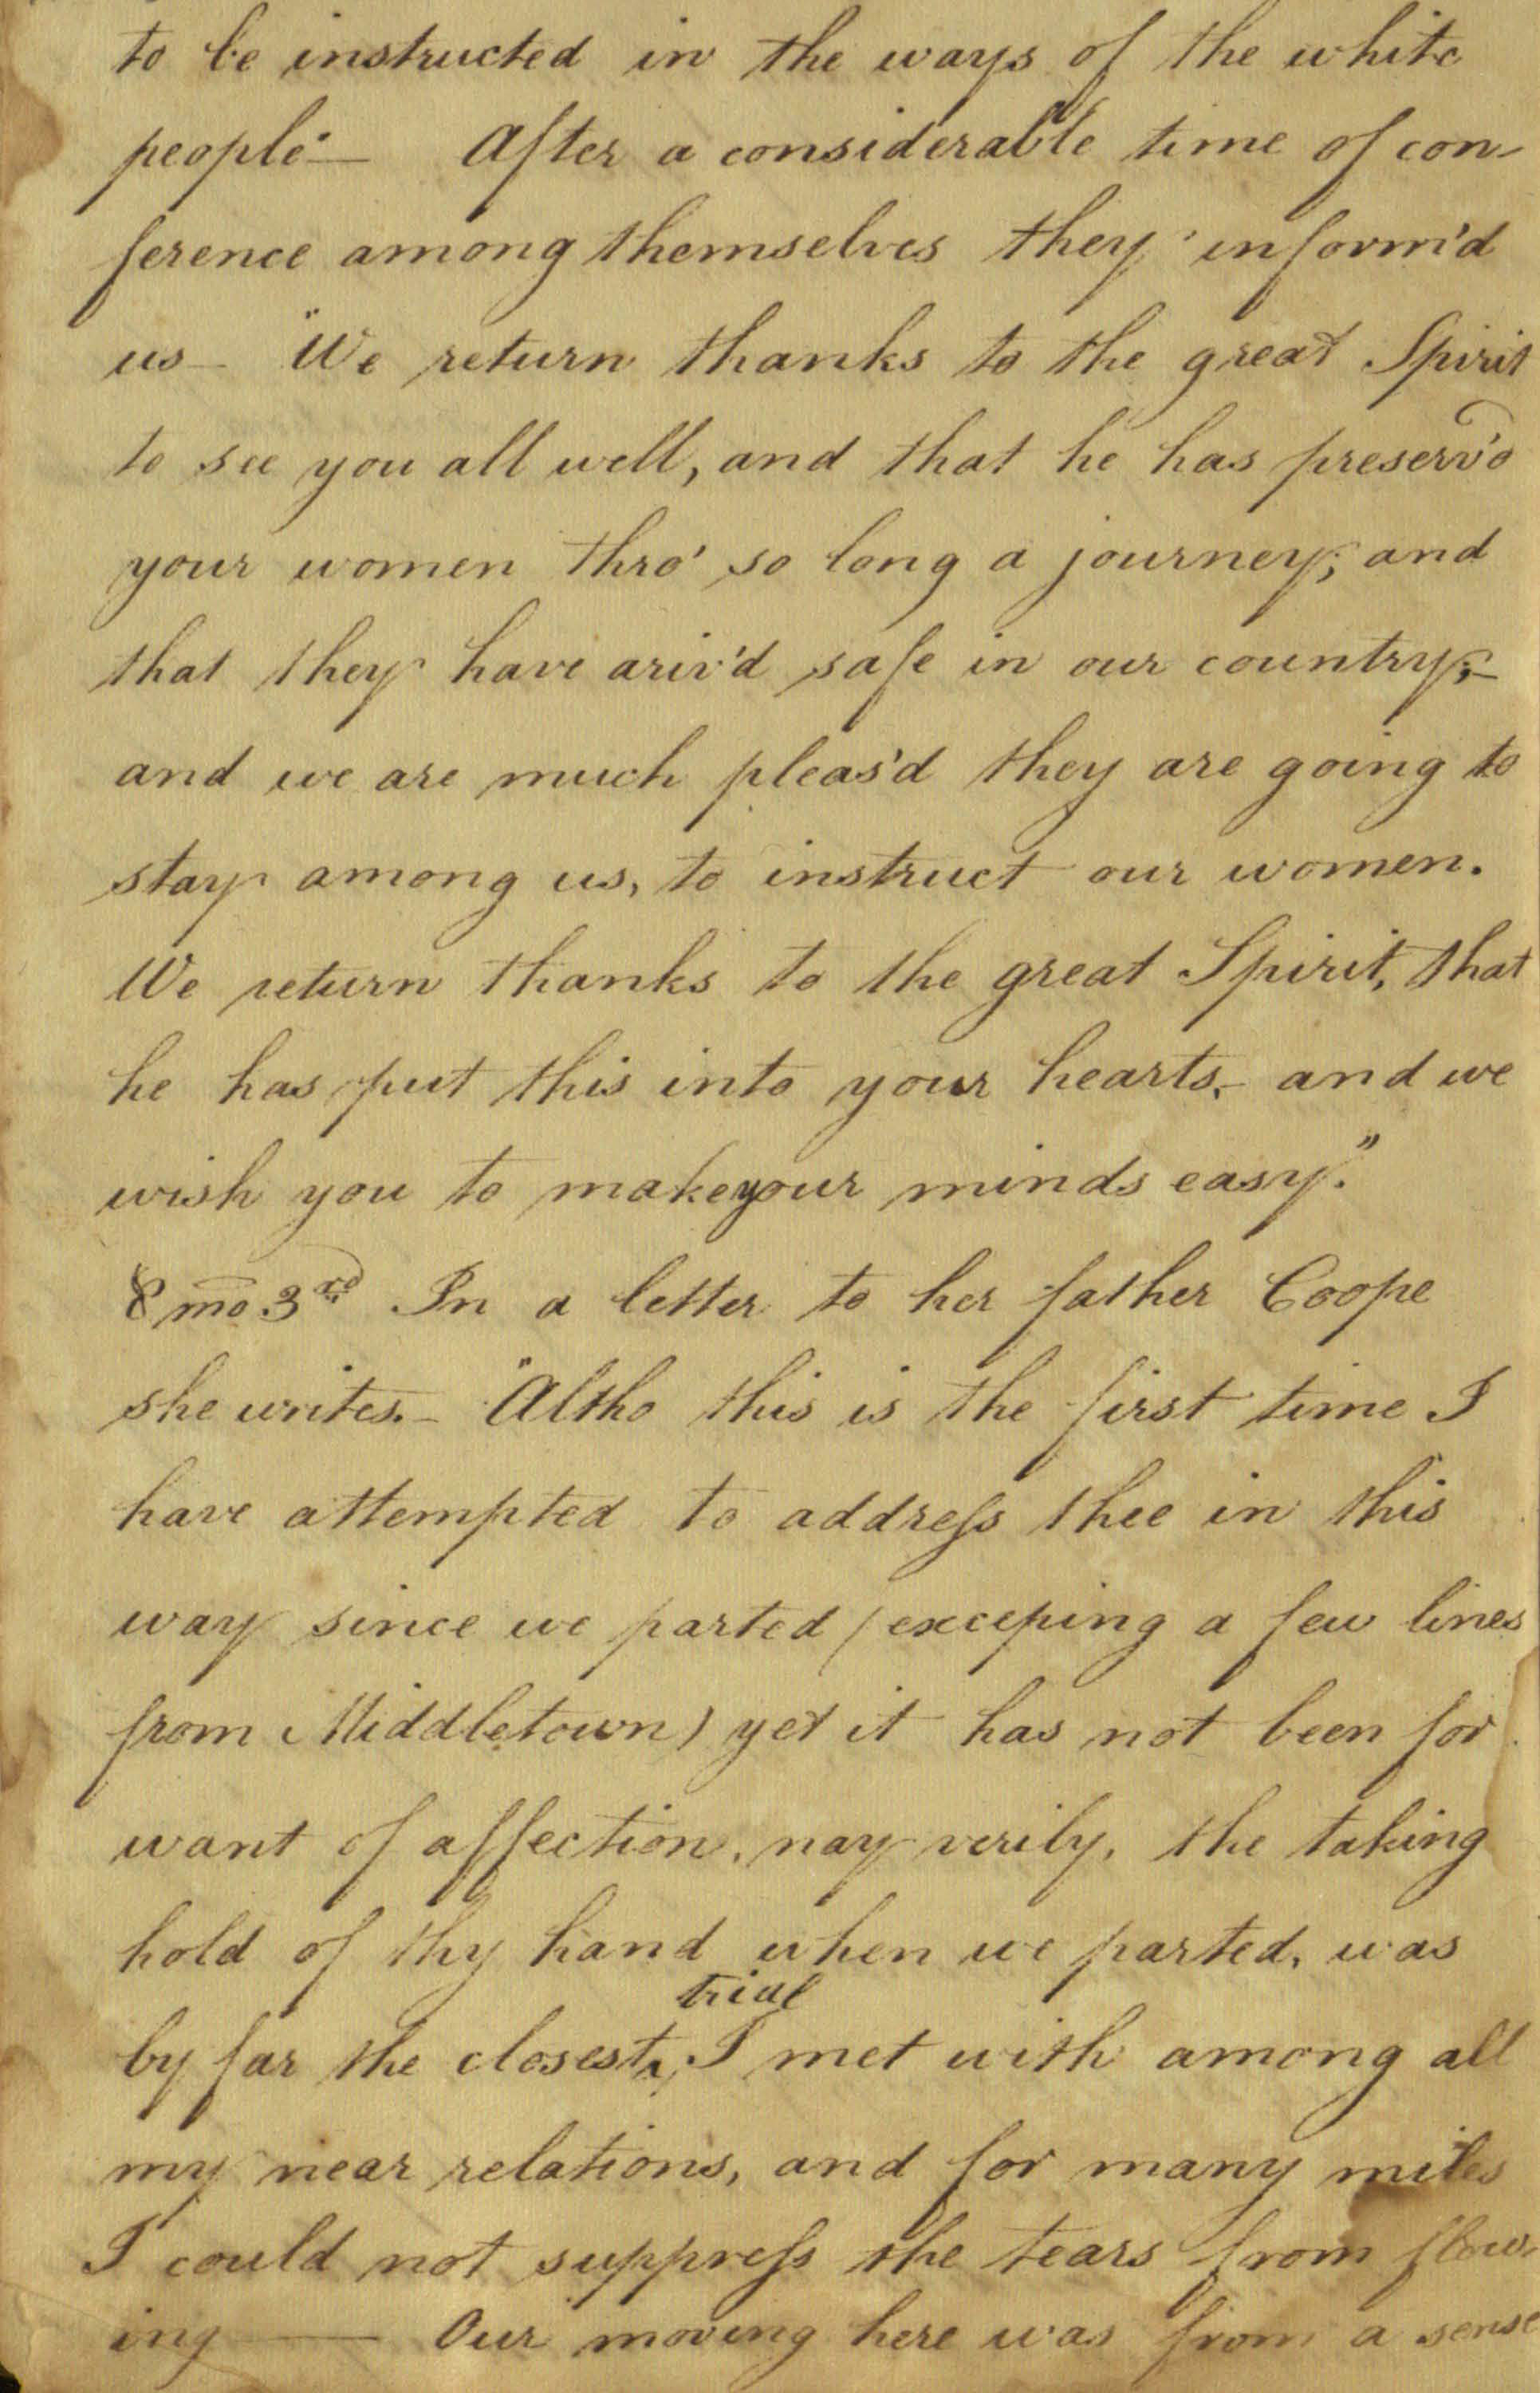 to be instructed in the ways of the white
people — After a considerable time of con-
ference among themselves they inform'd
us — "We return thanks to the great Spirit
to see you all well, and that he has preserv'd
your women thro' so long a journey; and
that they have ariv'd safe in our country; —
and we are much pleas'd they are going to
stay among us, to instruct our women.
We return thanks to the great Spirit, that
he has put this into your hearts, — and we
wish you to make your minds easy."
8 mo 3rd In a letter to her father Coope
she writes. — "Altho this is the first time I
have attempted to address thee in this
way since we parted (exceping a few lines
from Middletown) yet it has not been for
want of affection, nay verily, the taking
hold of thy hand when we parted, was
by far the closest ^trial I met with among all
my near relations, and for many miles
I could not suppress the tears from flow-
ing — Our moving here was from a sense